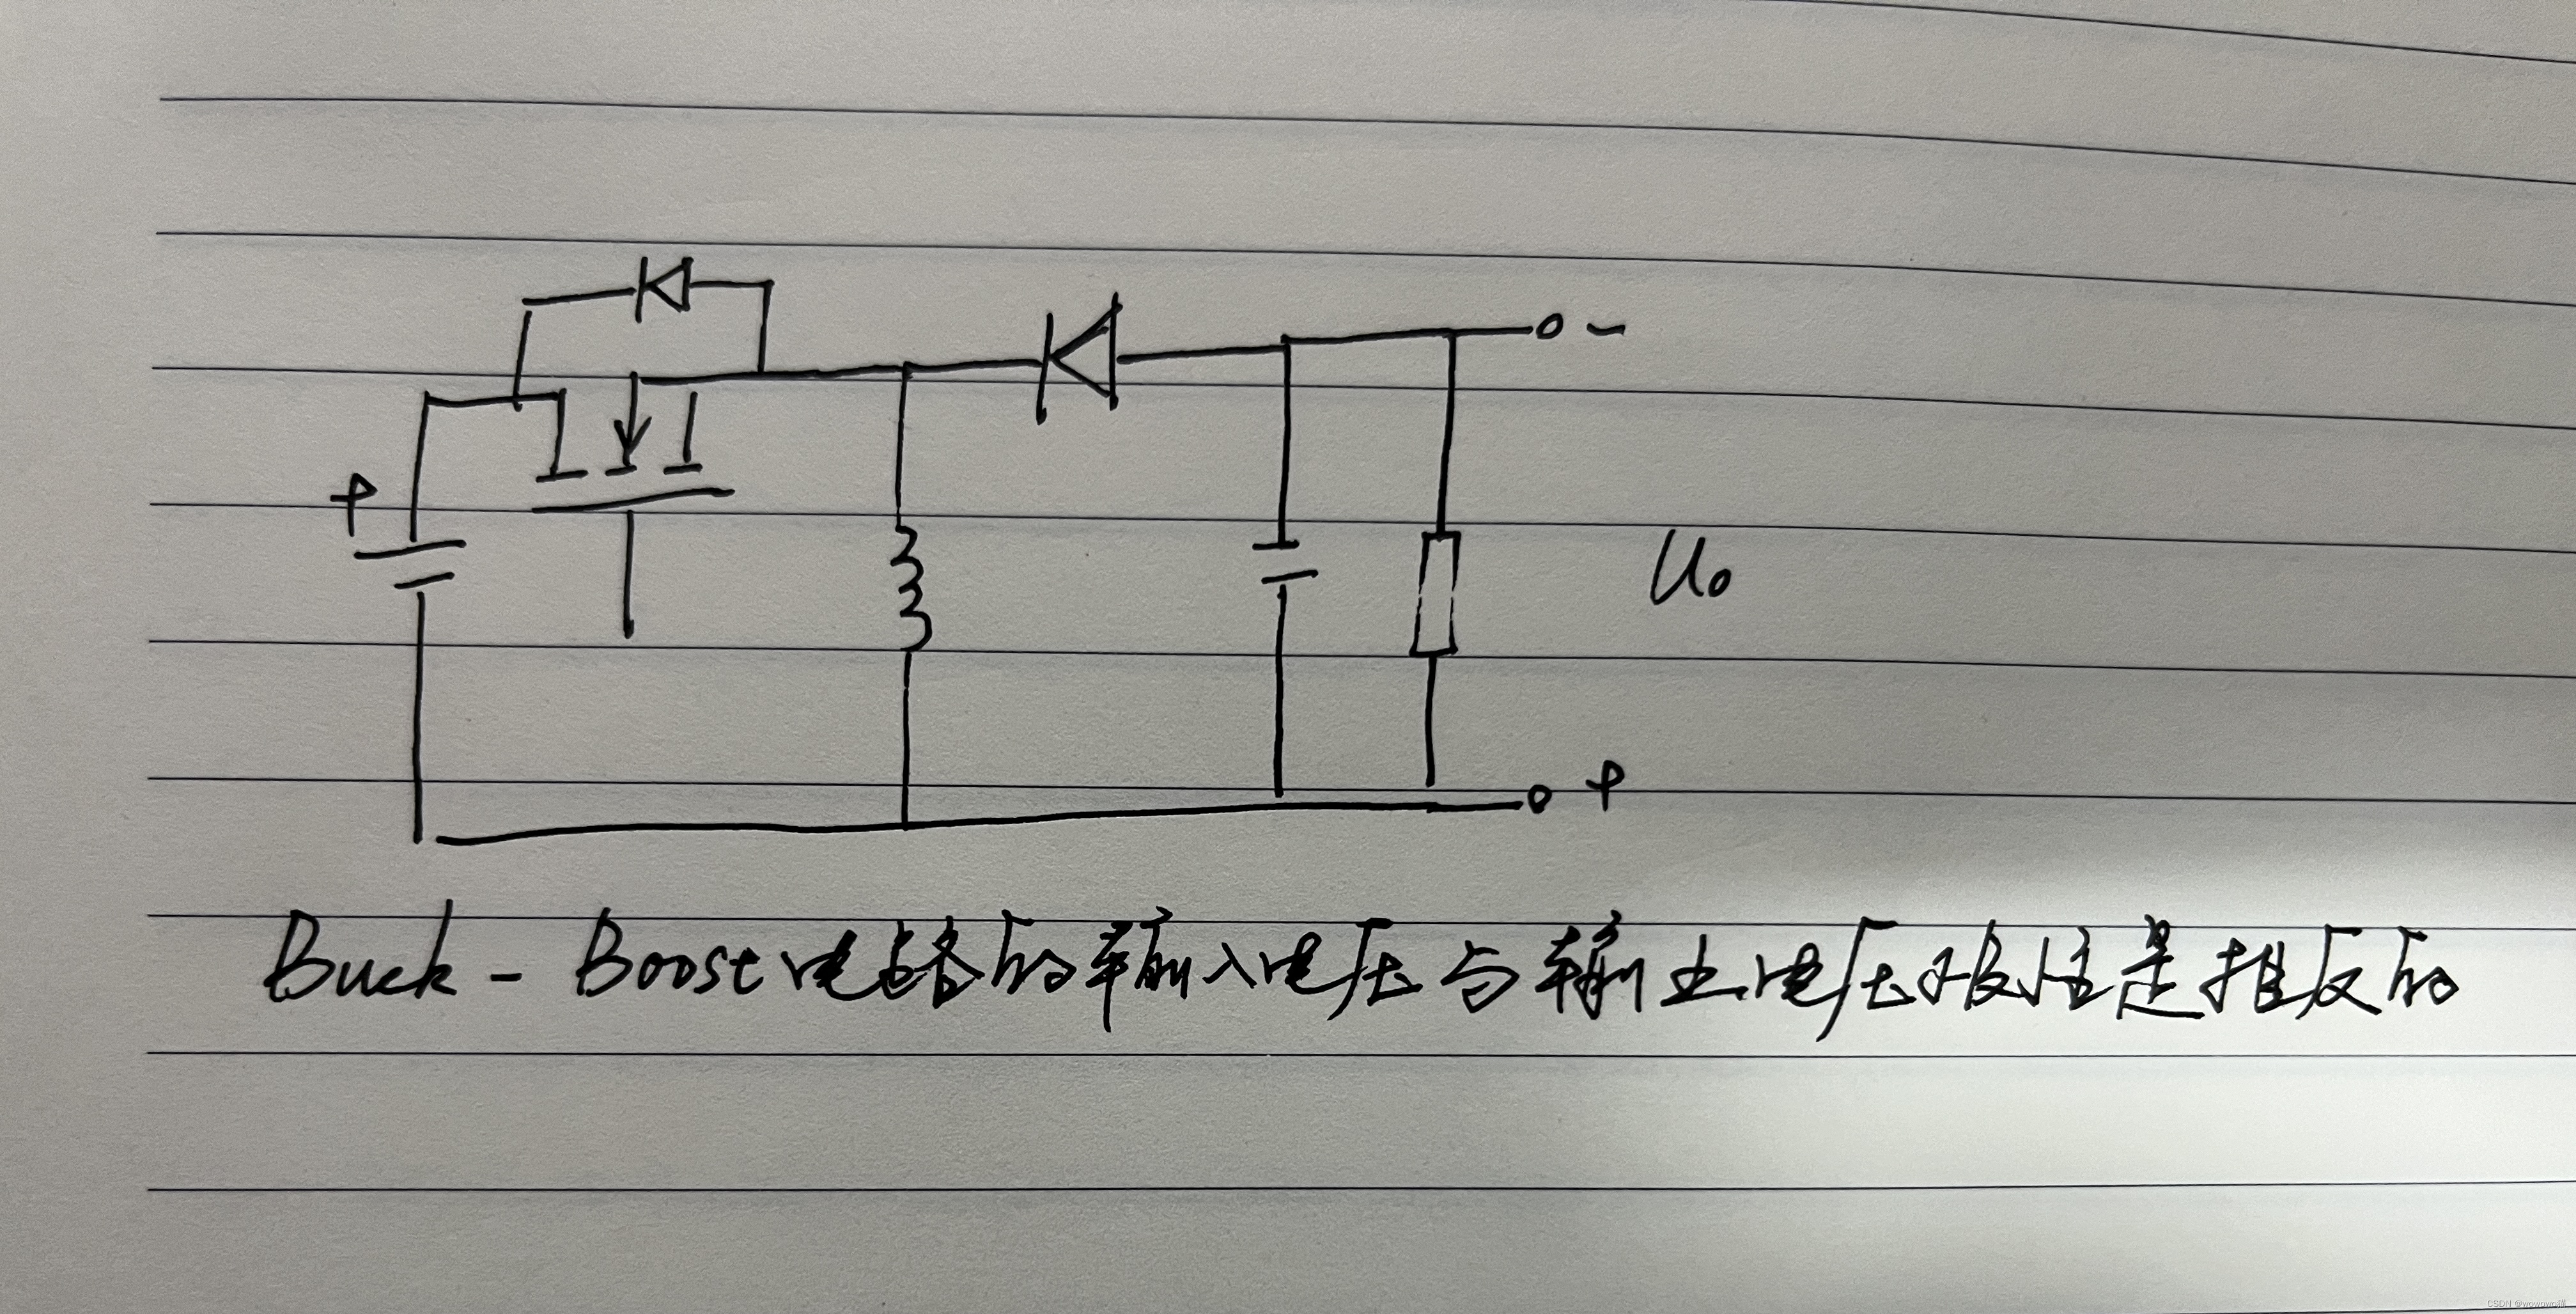 -
+
U₀
+
Buck - Boost电路的输入电压与输出电压极性是相反的
CSDN @wowowo强